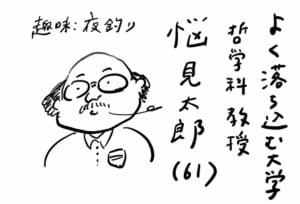 よく落ち込む大学
哲学科教授
悩見太郎(61)
趣味:夜釣り